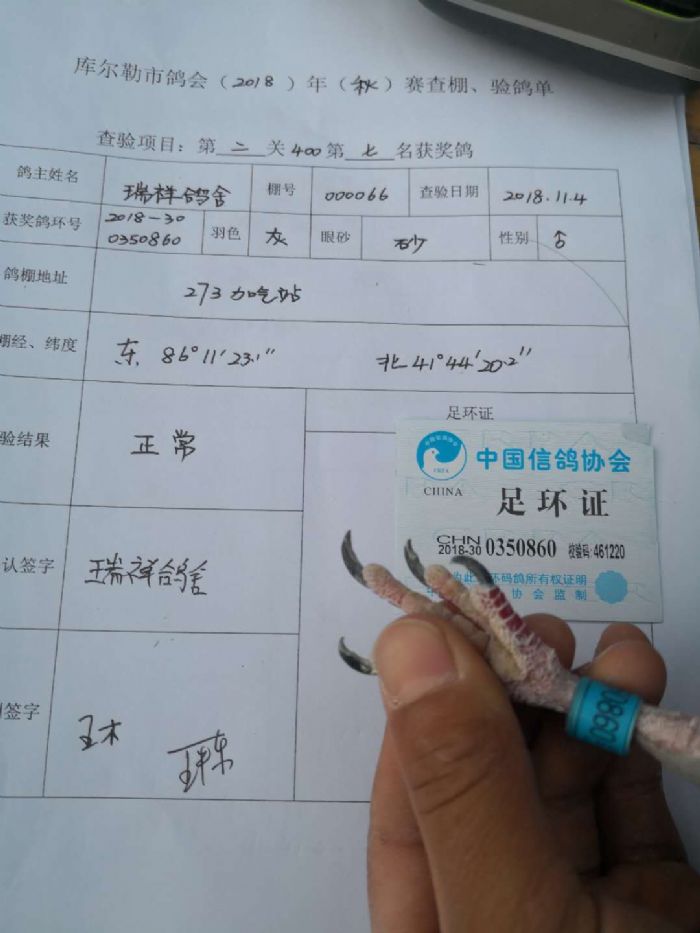 库尔勒市鸽会（2018）年（秋）赛查棚、验鸽单
查验项目：第二关400第七名获奖鸽
鸽主姓名 瑞祥鸽舍 棚号 000066 查验日期 2018.11.4
获奖鸽环号 2018-30 0350860 羽色 灰 眼砂 砂 性别 ♂
鸽棚地址 273加气站
棚经、纬度 东 86°11′23.1″ 北 41°44′20.2″
验结果 正常 足环证
中国信鸽协会
CHINA 足环证
CHN
2018-30 0350860 校验码:461220
为此 环码鸽所有权证明
中 协会监制
认签字 瑞祥鸽舍
签字 王木
0860